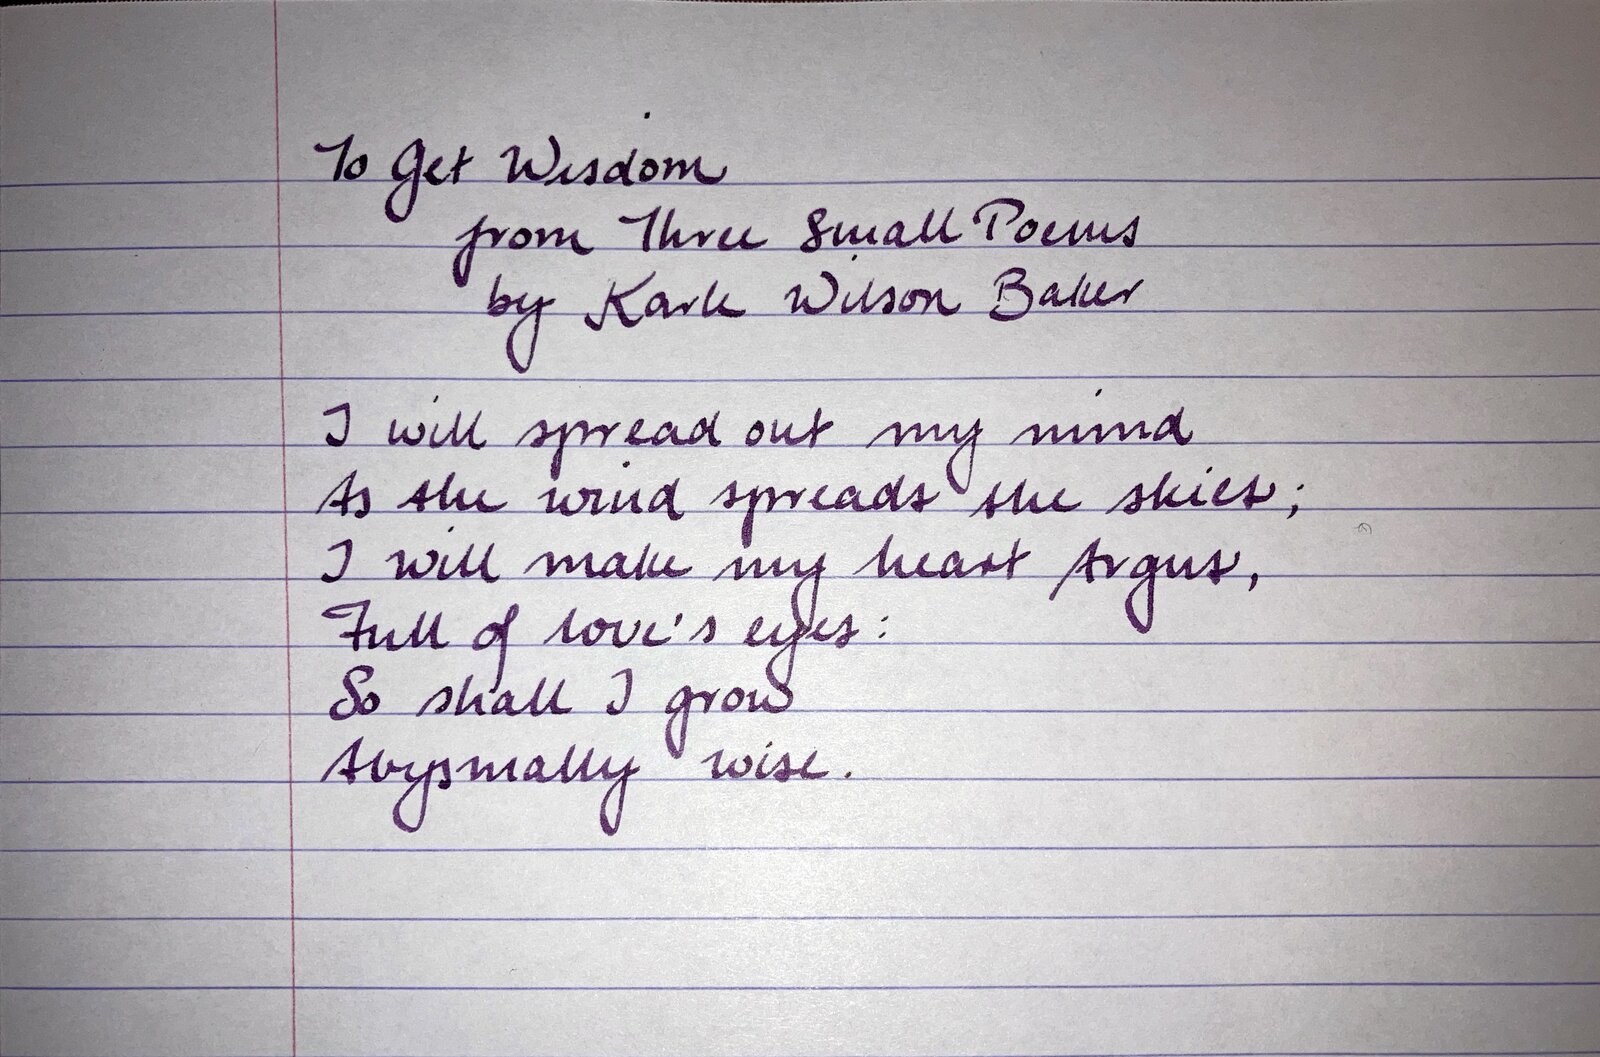 To Get Wisdom
from Three Small Poems
by Karle Wilson Baker
I will spread out my mind
As the wind spreads the skies;
I will make my heart Argus,
Full of love's eyes:
So shall I grow
Abysmally wise.